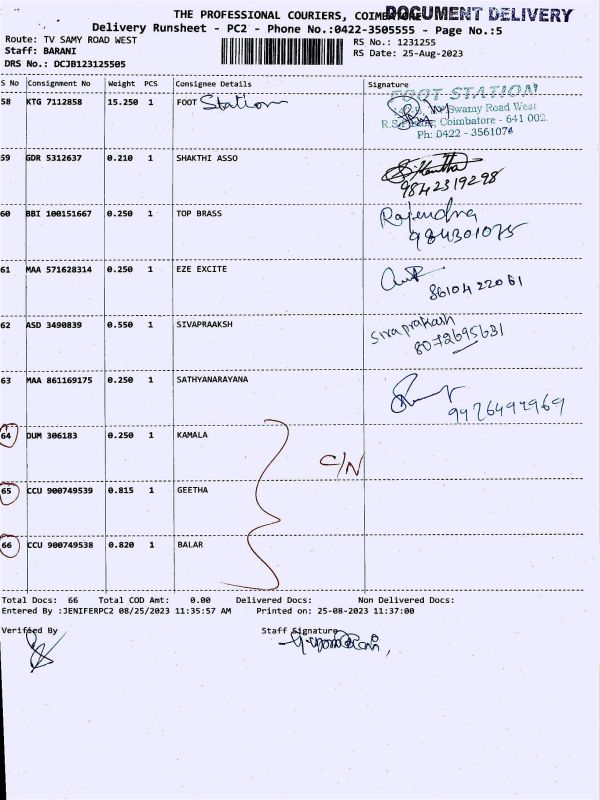 THE PROFESSIONAL COURIERS, COIMBATORE
DOCUMENT DELIVERY
Delivery Runsheet - PC2 - Phone No.:0422-3505555 - Page No.:5
Route: TV SAMY ROAD WEST
Staff: BARANI
DRS No.: DCJB123125505
RS No.: 1231255
RS Date: 25-Aug-2023
S No Consignment No Weight PCS Consignee Details Signature
58 KTG 7112858 15.250 1 FOOT Station
FOOT STATION
Swamy Road West
Coimbatore - 641 002.
Ph: 0422 - 3561074
59 GDR 5312637 0.210 1 SHAKTHI ASSO
9842319298
60 BBI 100151667 0.250 1 TOP BRASS Rajendra
984301075
61 MAA 571628314 0.250 1 EZE EXCITE
8610422061
62 ASD 3490839 0.550 1 SIVAPRAAKSH Sivaprakash
8072695631
63 MAA 861169175 0.250 1 SATHYANARAYANA
9976494969
64 DUM 306183 0.250 1 KAMALA
C/N
65 CCU 900749539 0.815 1 GEETHA
66 CCU 900749538 0.820 1 BALAR
Total Docs: 66 Total COD Amt: 0.00 Delivered Docs: Non Delivered Docs:
Entered By :JENIFERPC2 08/25/2023 11:35:57 AM Printed on: 25-08-2023 11:37:00
Verified By Staff Signature